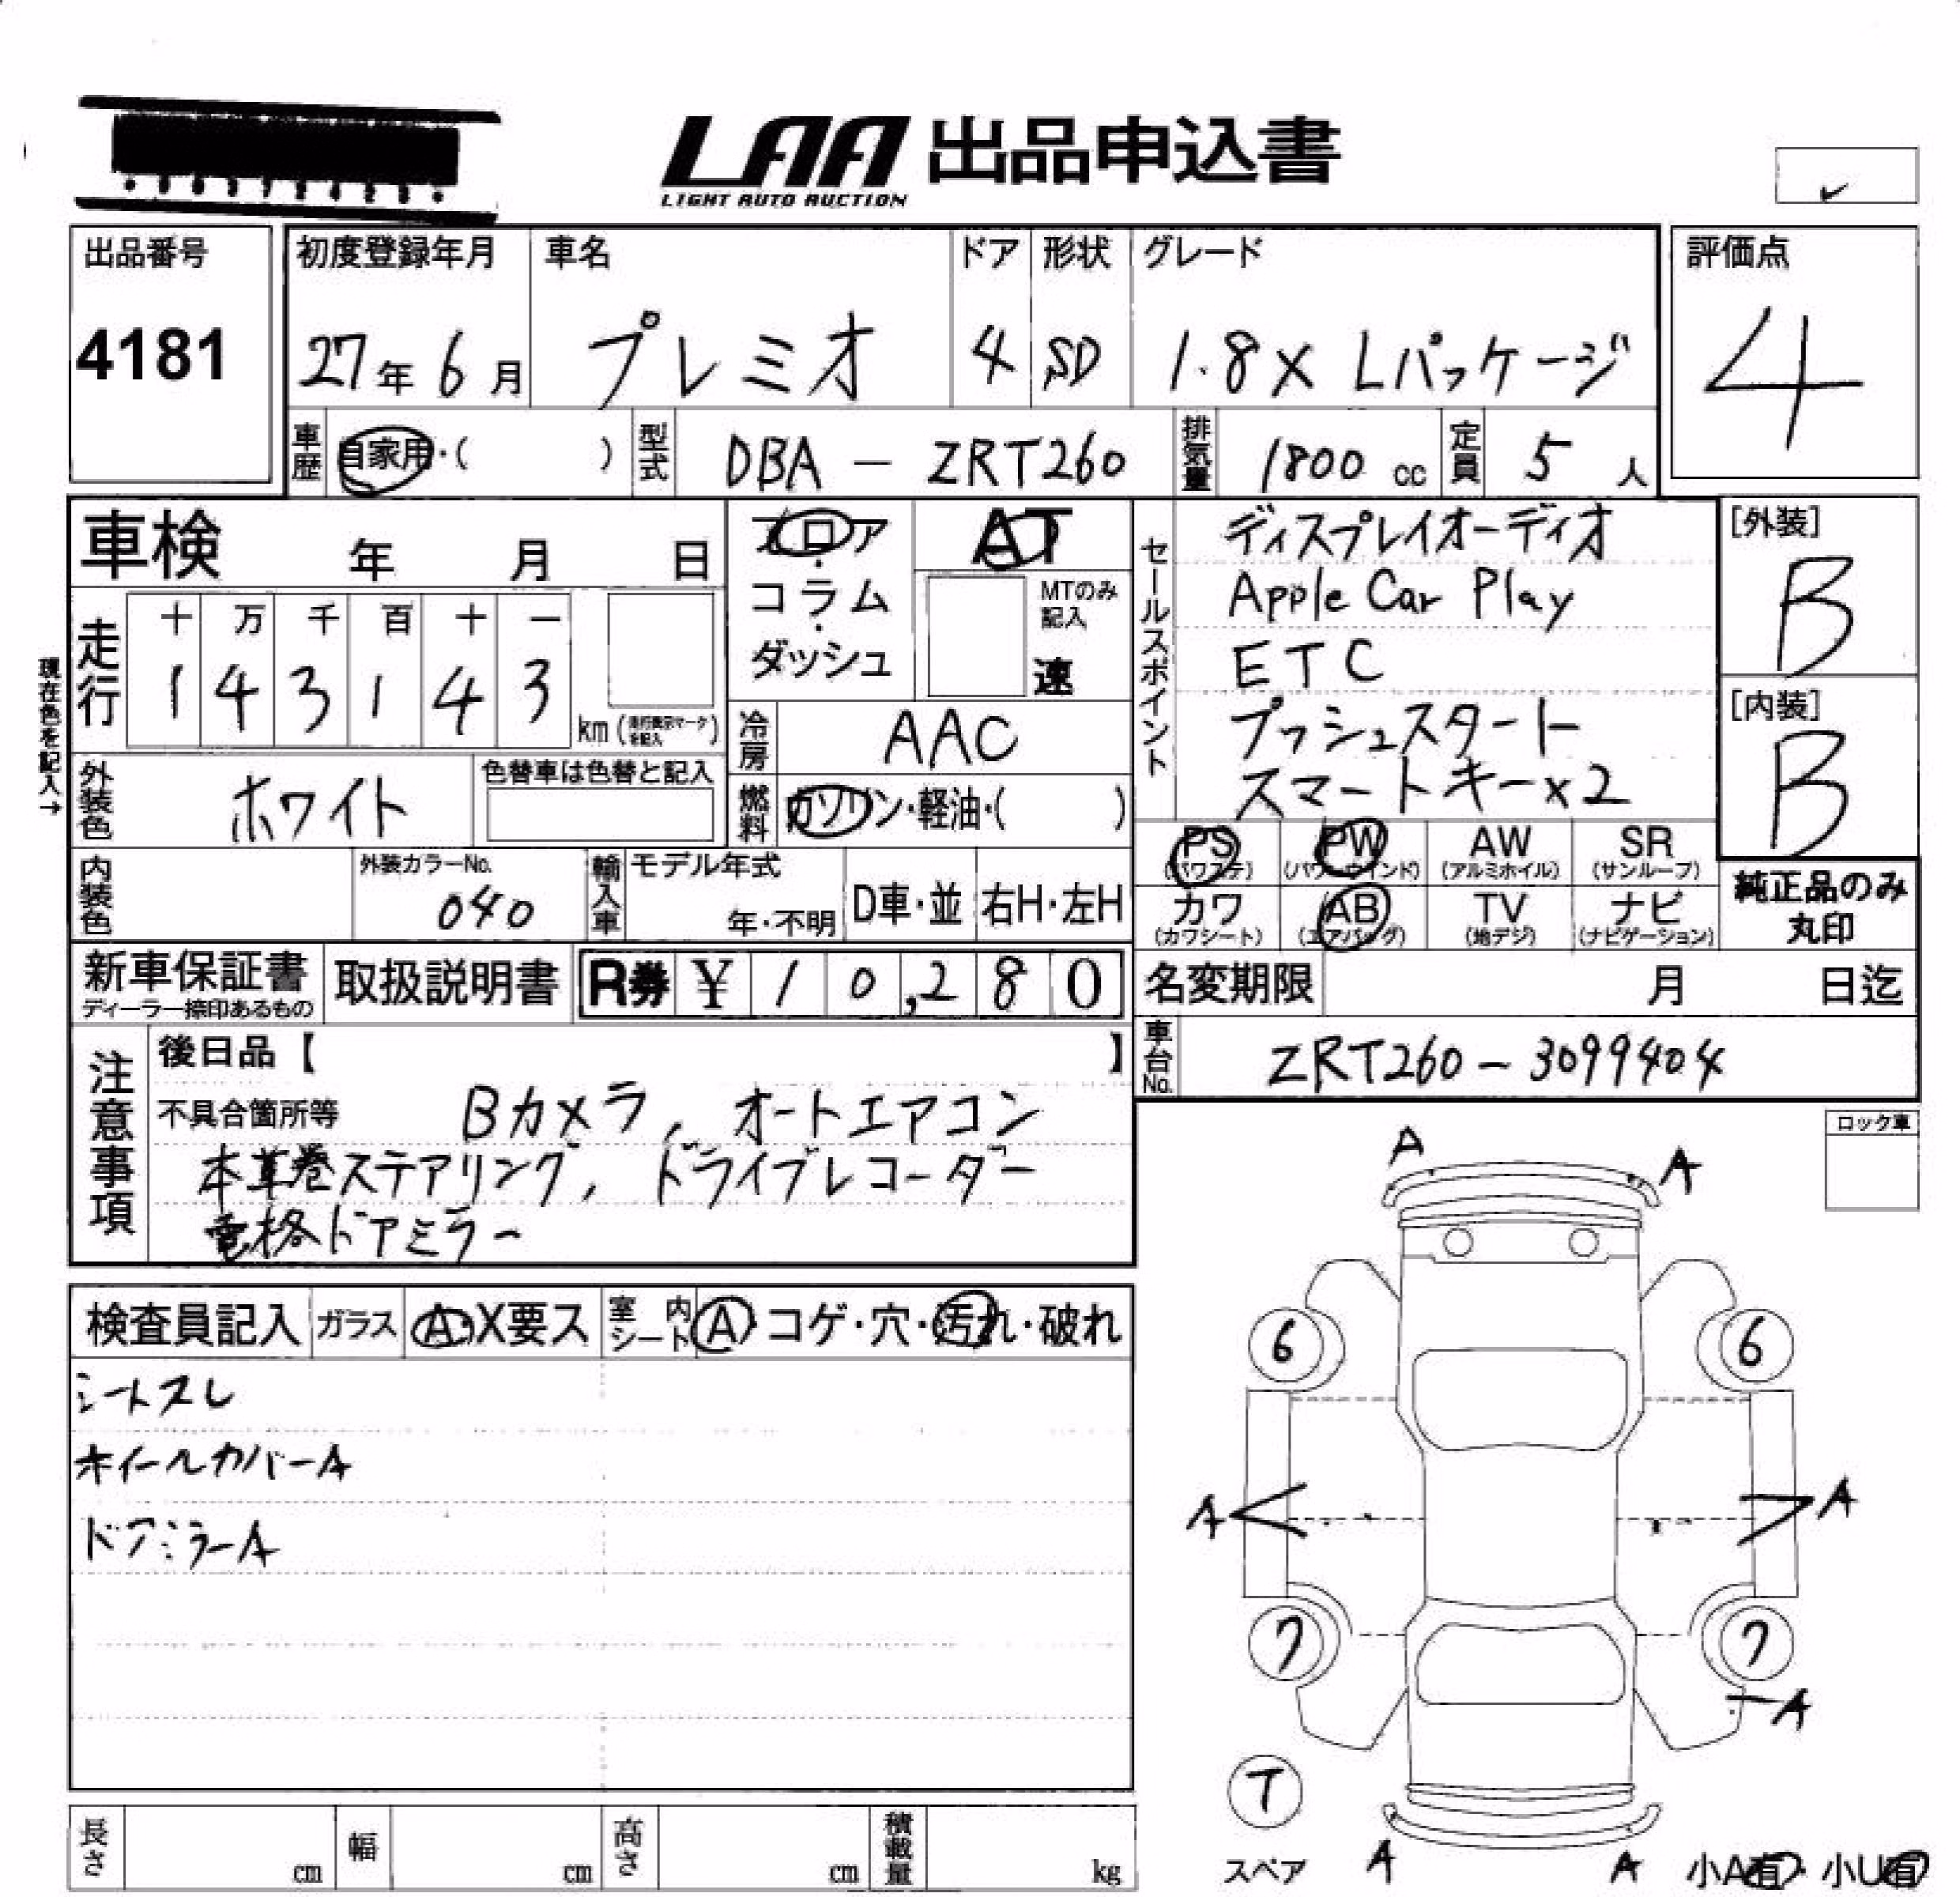 LAA 出品申込書
LIGHT AUTO AUCTION
出品番号
4181
初度登録年月
27年 6月
車名
プレミオ
ドア
4
形状
SD
グレード
1.8X Lパッケージ
評価点
4
車歴
自家用・( )
型式
DBA - ZRT260
排気量
1800 cc
定員
5 人
車検 年 月 日
フロア
・
コラム
・
ダッシュ
AT
MTのみ
記入
速
セールスポイント
ディスプレイオーディオ
Apple Car Play
ETC
プッシュスタート
スマートキーx2
[外装]
B
[内装]
B
現在色を記入→
走行
十 万 千 百 十 一
1 4 3 1 4 3
km(走行表示マークを記入)
冷房
AAC
外装色
ホワイト
色替車は色替と記入
燃料
ガソリン・軽油・( )
PS
(パワステ)
PW
(パワーウインド)
AW
(アルミホイル)
SR
(サンルーフ)
内装色
外装カラーNo.
040
輸入車
モデル年式
年・不明
D車・並
右H・左H
カワ
(カワシート)
AB
(エアバッグ)
TV
(地デジ)
ナビ
(ナビゲーション)
純正品のみ
丸印
新車保証書
ディーラー捺印あるもの
取扱説明書
R券 ¥ 10,280
名変期限 月 日迄
車台No.
ZRT260-3099404
注意事項
後日品【 】
不具合箇所等 Bカメラ, オートエアコン
本革巻ステアリング, ドライブレコーダー
電格ドアミラー
ロック車
検査員記入
ガラス
A・X要ス
室内シート
A・コゲ・穴・汚れ・破れ
シートスレ
ホイールカバーA
ドアミラーA
A
A
6
6
A
A
7
7
A
T
スペア
A
A
小A有・小U有
長さ cm
幅 cm
高さ cm
積載量 kg